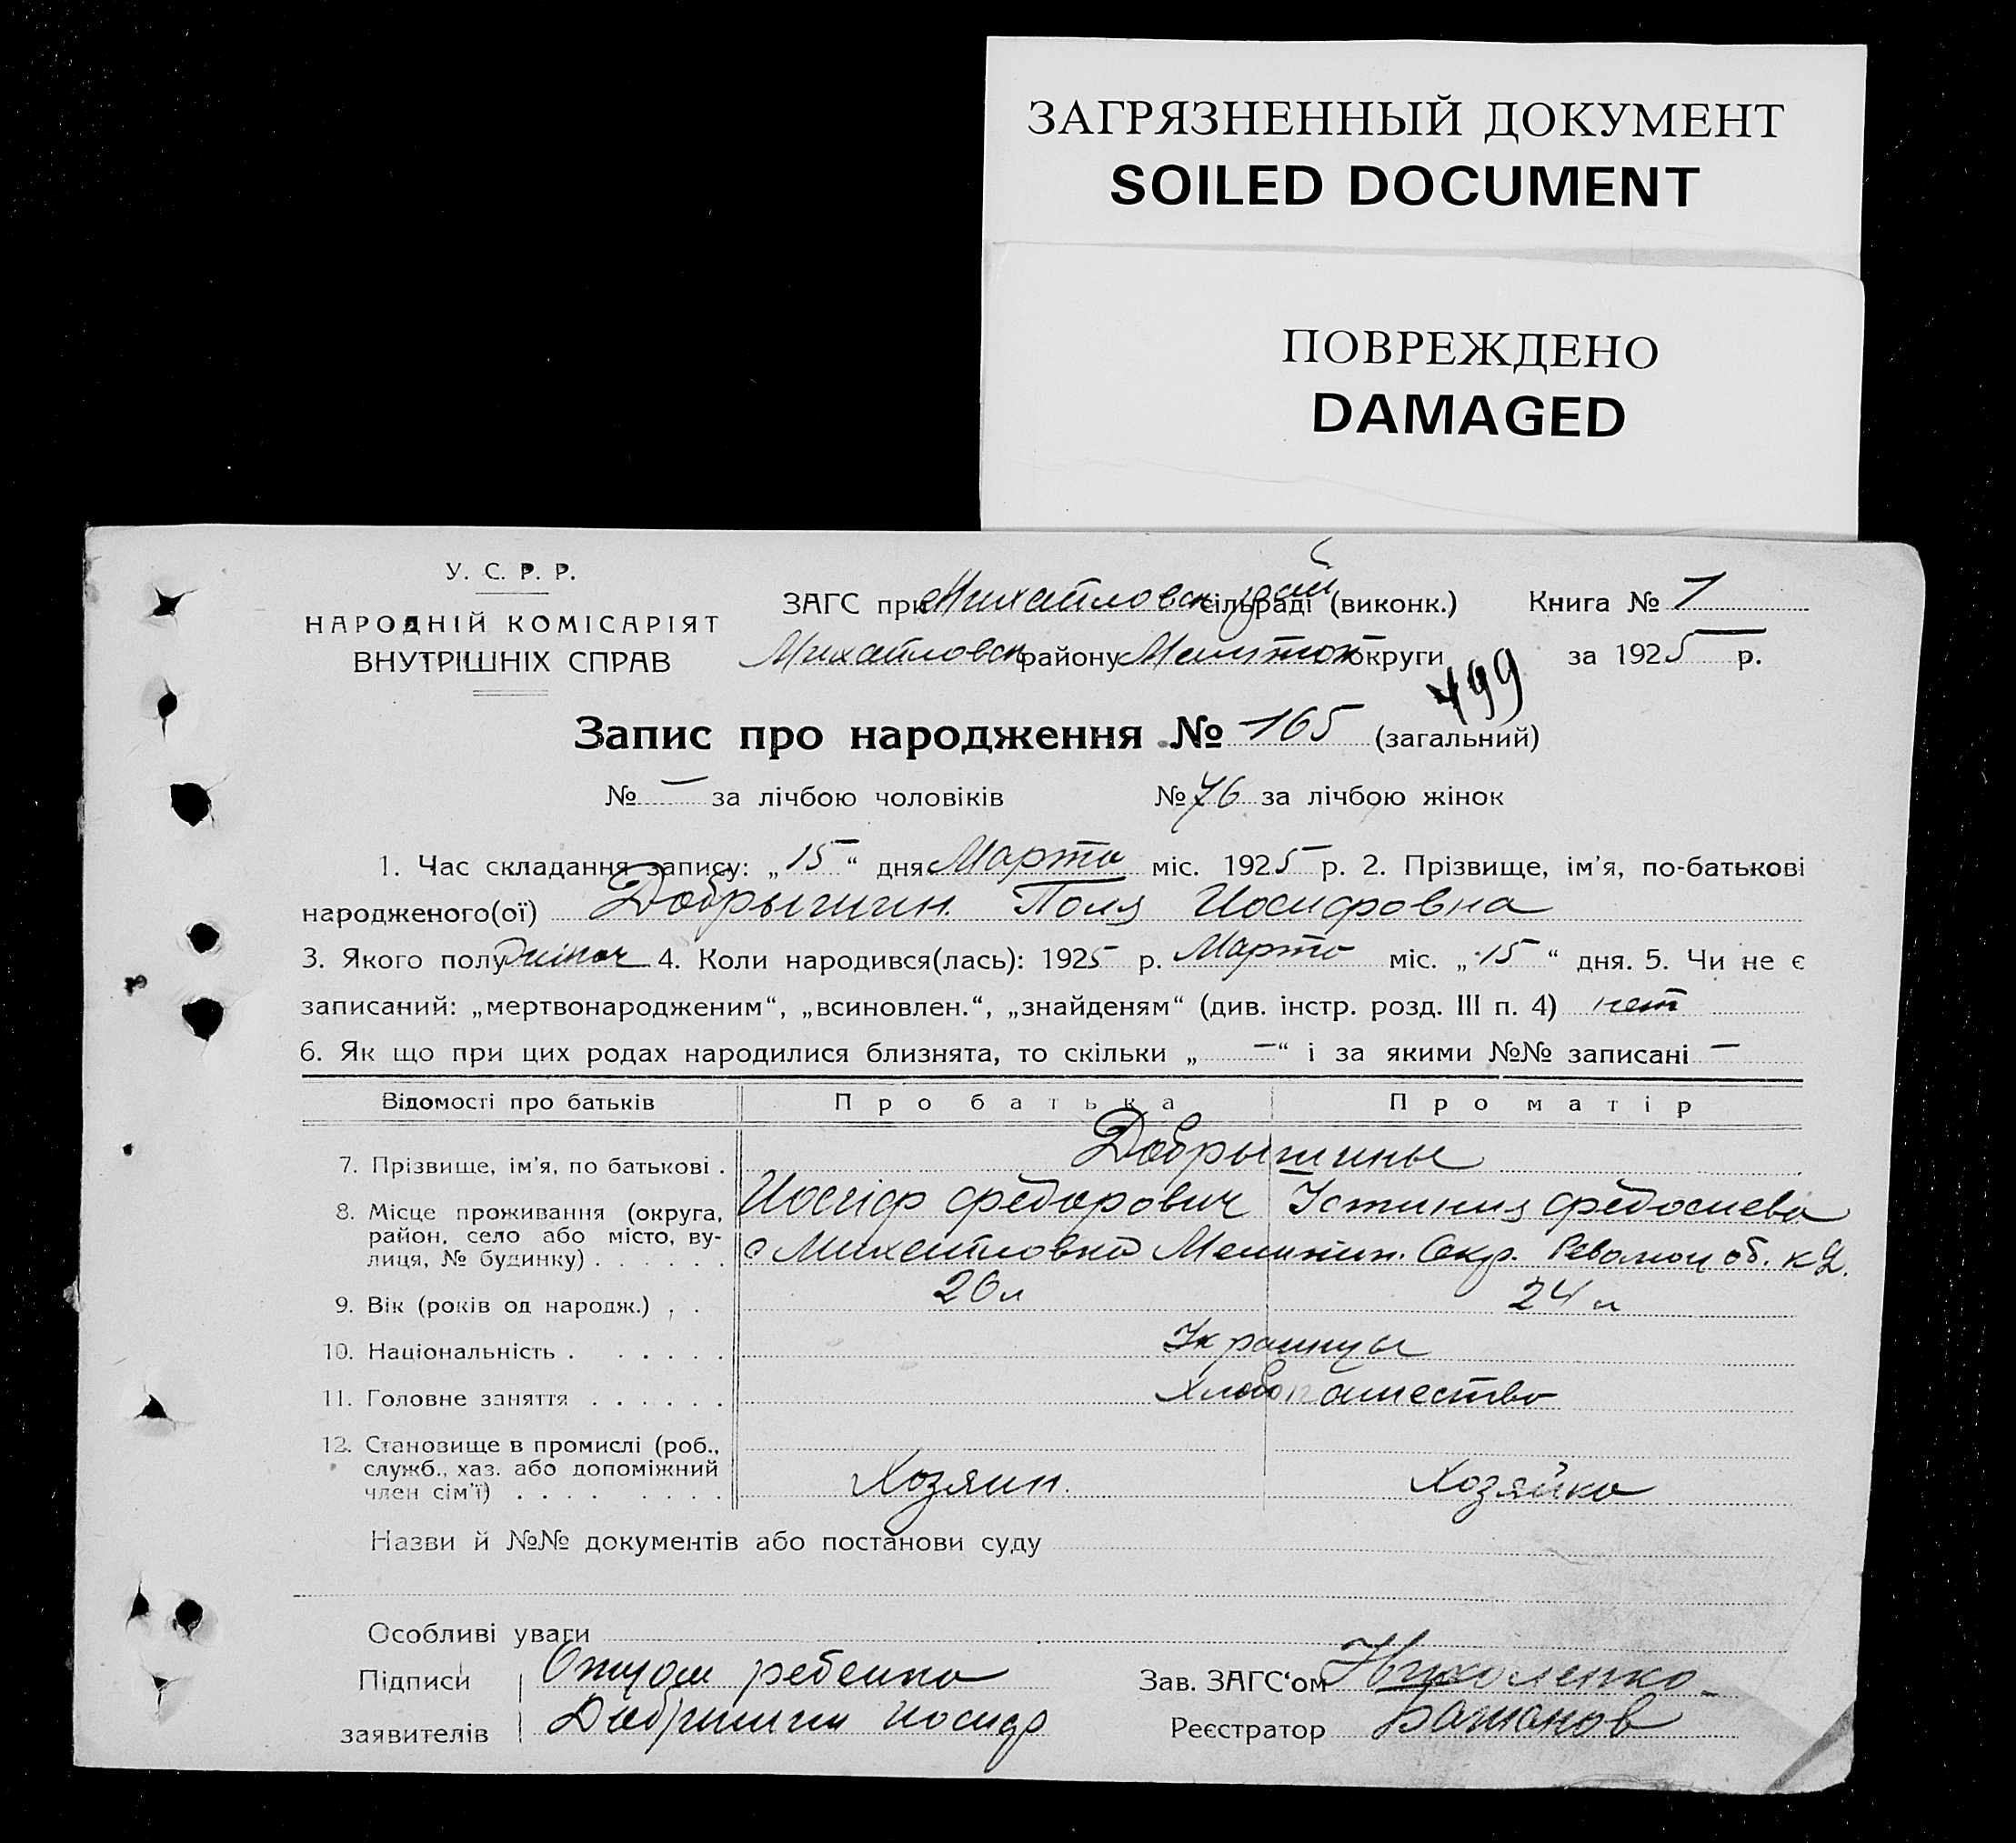 ЗАГРЯЗНЕННЫЙ ДОКУМЕНТ
SOILED DOCUMENT
ПОВРЕЖДЕНО
DAMAGED
У. С. Р. Р.
НАРОДНІЙ КОМІСАРІЯТ
ВНУТРІШНІХ СПРАВ
ЗАГС при Михайловск сільраді (виконк.) Книга № 1
Михайловск району Мелитоп округи за 1925 р.
499
Запис про народження № 165 (загальний)
№ — за лічбою чоловіків № 76 за лічбою жінок
1. Час складання запису: „15“ дня Марта міс. 1925 р. 2. Прізвище, ім'я, по-батькові
народженого(ої) Добрышин. Поля Иосифовна
3. Якого полу жіноч 4. Коли народився(лась): 1925 р. Марта міс. „15“ дня. 5. Чи не є
записаний: „мертвонародженим“, „всиновлен.“, „знайденям“ (див. інстр. розд. III п. 4) нет
6. Як що при цих родах народилися близнята, то скільки „—“ і за якими №№ записані —
Відомості про батьків Про батька Про матір
7. Прізвище, ім'я, по батькові . Добрышины
Иосіф Федорович Устиния Федосиева
8. Місце проживання (округа,
район, село або місто, ву-
лиця, № будинку) . . . . . . с Михайловка Мелитоп. Окр.
9. Вік (років од народж.) . . 26 л 24 л
10. Національність . . . . . . Украинцы
11. Головне заняття . . . . . . Хлебопашество
12. Становище в промислі (роб.,
служб., хаз. або допоміжний
член сім'ї) . . . . . . . . Хозяин. Хозяйка
Назви й №№ документів або постанови суду
Особливі уваги
Підписи Отцом ребенка Зав. ЗАГС'ом Николенко
заявителів Добришин Иосиф Реєстратор Бажанов